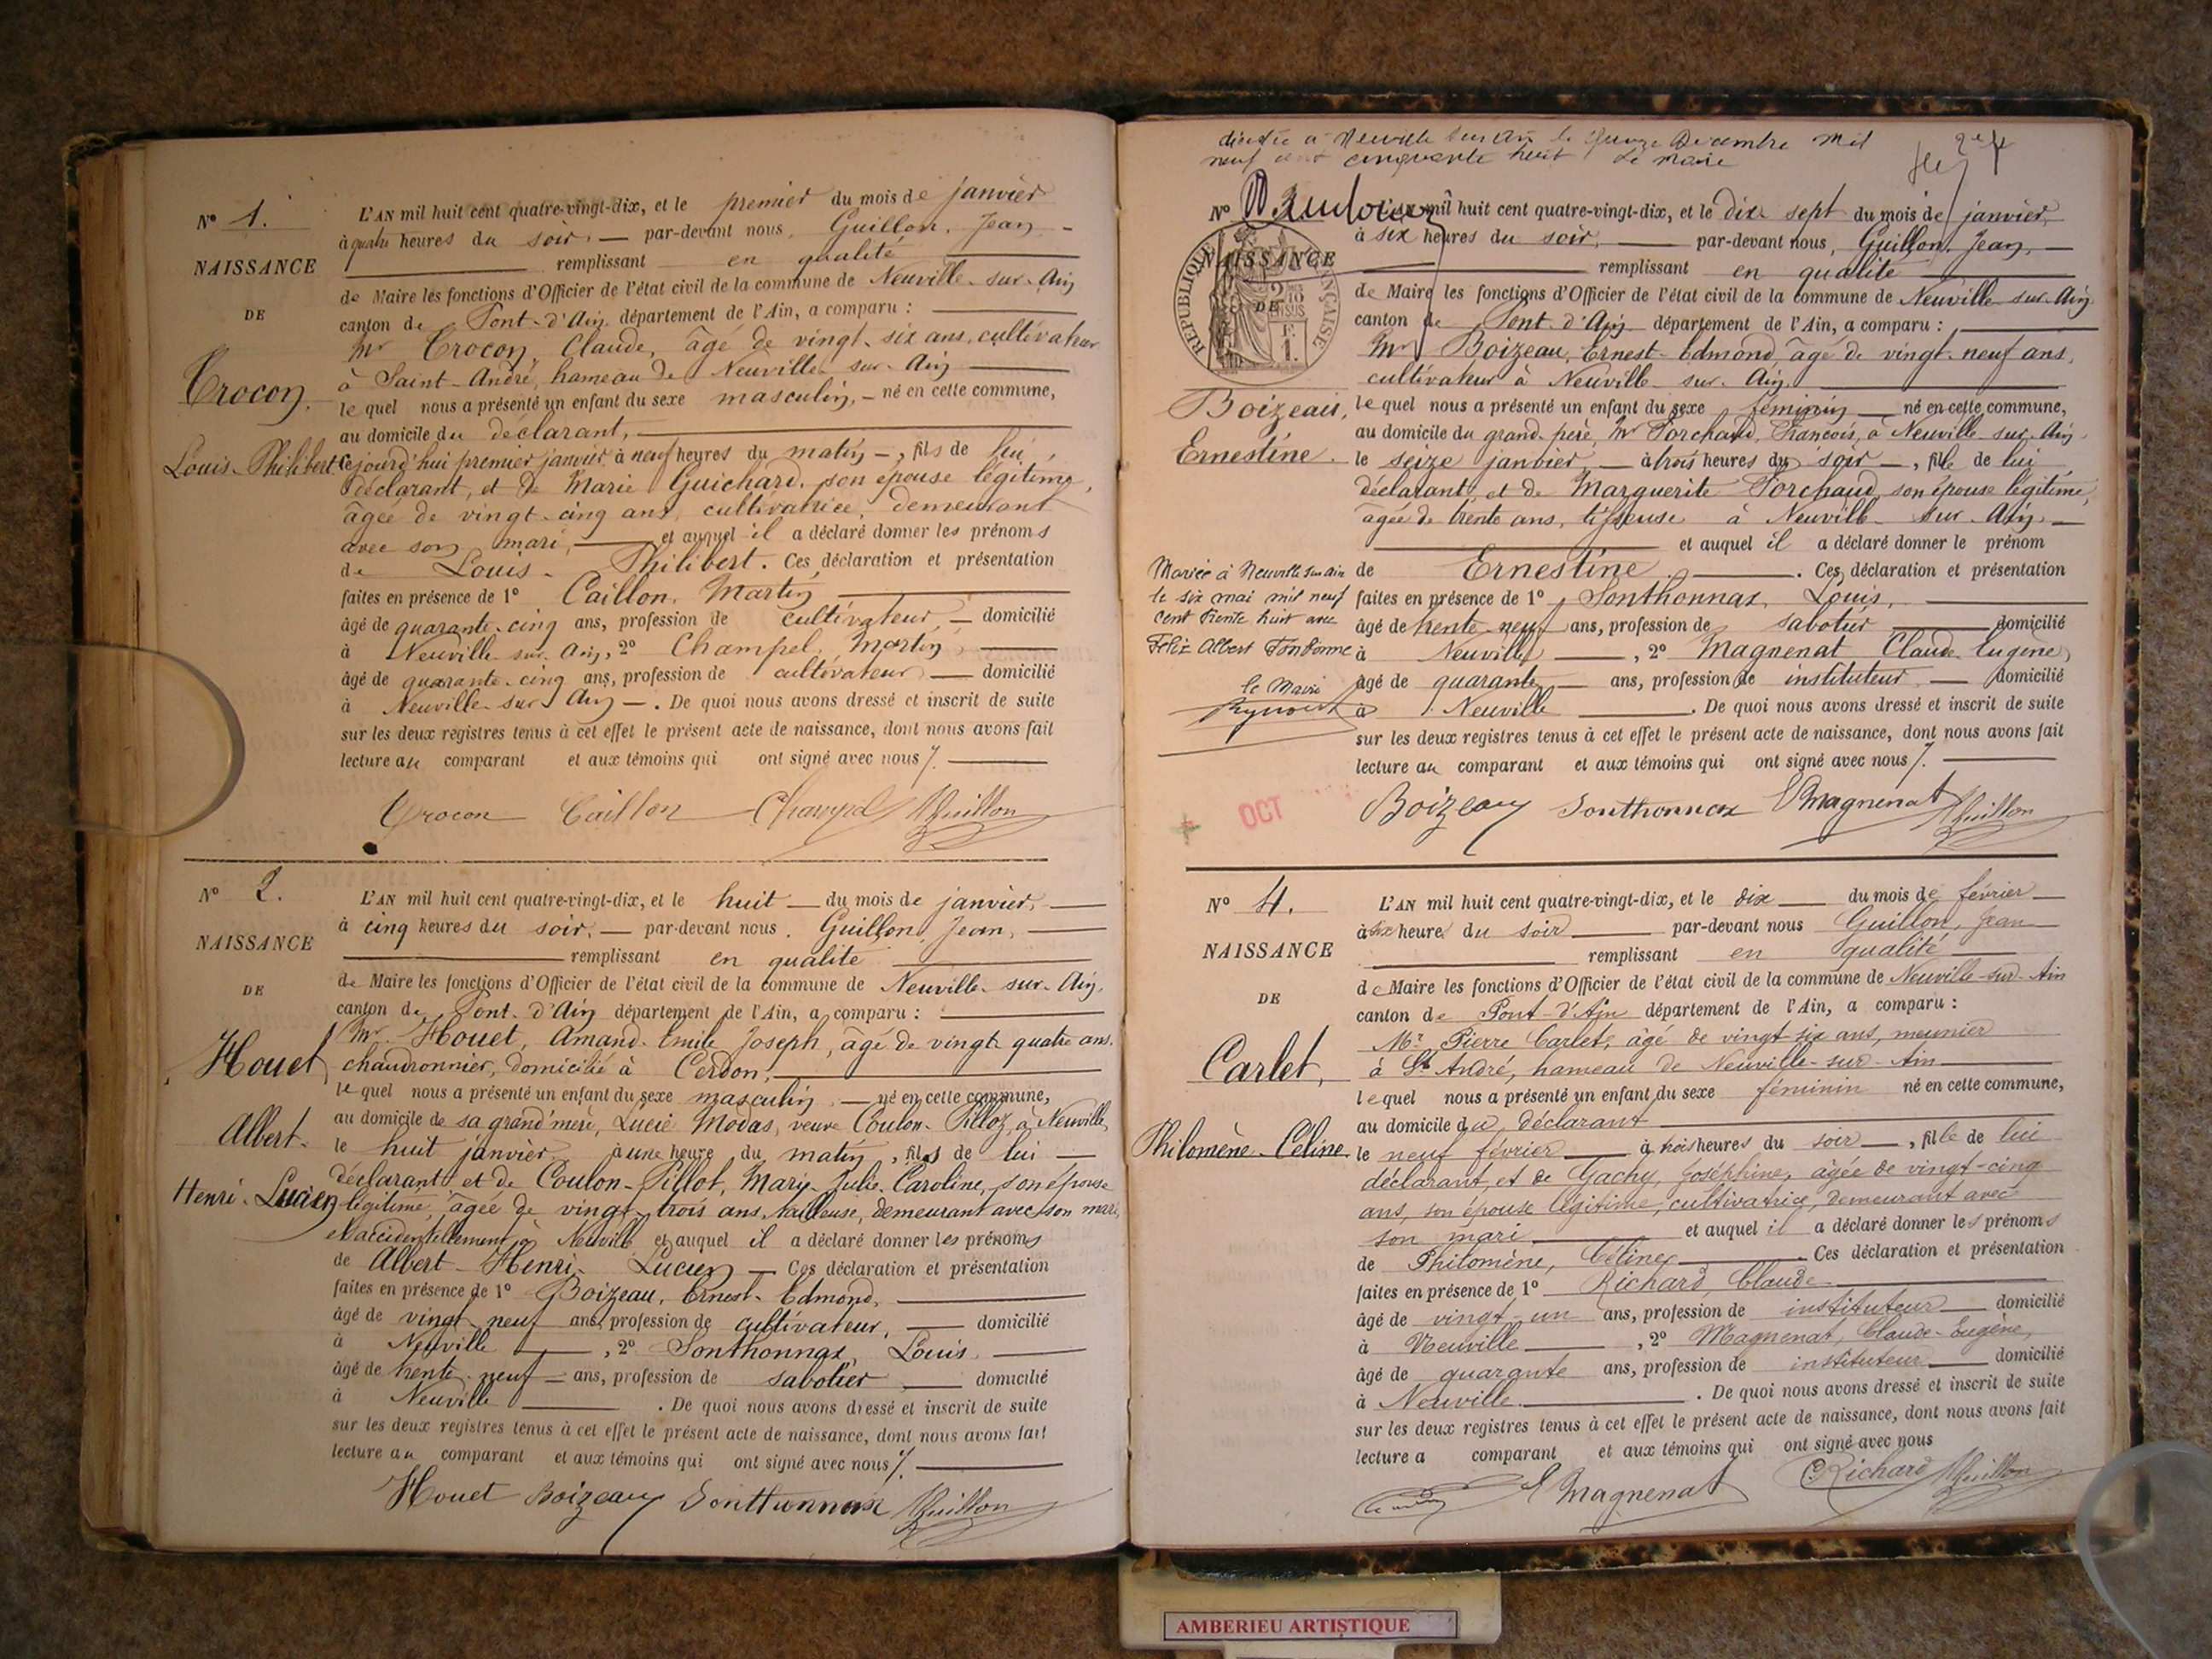 N° 1.
NAISSANCE
DE
Crocon,
Louis-Philibert
L'AN mil huit cent quatre-vingt-dix, et le premier du mois de janvier
à quatre heures du soir, — par-devant nous, Guillon, Jean, —
remplissant en qualité
de Maire les fonctions d'Officier de l'état civil de la commune de Neuville-sur-Ain
canton de Pont-d'Ain département de l'Ain, a comparu :
Mr Crocon, Claude, âgé de vingt-six ans, cultivateur
à Saint-André, hameau de Neuville-sur-Ain
le quel nous a présenté un enfant du sexe masculin, — né en cette commune,
au domicile du déclarant,
cejourd'hui premier janvier, à neuf heures du matin —, fils de lui,
déclarant, et de Marie Guichard, son épouse légitime,
âgée de vingt-cinq ans, cultivatrice, demeurant
avec son mari, — et auquel il a déclaré donner les prénoms
de Louis-Philibert. Ces déclaration et présentation
faites en présence de 1° Caillon, Martin
âgé de quarante-cinq ans, profession de cultivateur, — domicilié
à Neuville-sur-Ain, 2° Champel, Martin,
âgé de quarante-cinq ans, profession de cultivateur — domicilié
à Neuville-sur-Ain —. De quoi nous avons dressé et inscrit de suite
sur les deux registres tenus à cet effet le présent acte de naissance, dont nous avons fait
lecture au comparant et aux témoins qui ont signé avec nous /.
Crocon Caillon Champel JGuillon
N° 2.
NAISSANCE
DE
Houet,
Albert-
Henri-Lucien
L'AN mil huit cent quatre-vingt-dix, et le huit — du mois de janvier,
à cinq heures du soir, — par-devant nous, Guillon, Jean,
remplissant en qualité
de Maire les fonctions d'Officier de l'état civil de la commune de Neuville-sur-Ain,
canton de Pont-d'Ain département de l'Ain, a comparu :
Mr Houet, Amand-Emile Joseph, âgé de vingt-quatre ans,
chaudronnier, domicilié à Cerdon,
le quel nous a présenté un enfant du sexe masculin, — né en cette commune,
au domicile de sa grand'mère, Lucie Modas, veuve Coulon-Pilloz, à Neuville,
le huit janvier, à une heure du matin, fils de lui —
déclarant et de Coulon-Pillot, Marie-Julie-Caroline, son épouse
légitime, âgée de vingt-trois ans, tailleuse, demeurant avec son mari,
et accidentellement à Neuville et auquel il a déclaré donner les prénoms
de Albert-Henri-Lucien — Ces déclaration et présentation
faites en présence de 1° Boizeau, Ernest-Edmond,
âgé de vingt-neuf ans, profession de cultivateur, — domicilié
à Neuville —, 2° Sonthonnax, Louis,
âgé de trente-neuf — ans, profession de sabotier — domicilié
à Neuville — . De quoi nous avons dressé et inscrit de suite
sur les deux registres tenus à cet effet le présent acte de naissance, dont nous avons fait
lecture au comparant et aux témoins qui ont signé avec nous /.
Houet Boizeau Sonthonnax JGuillon
décédée à Neuville sur Ain le Decembre mil
neuf cent cinquante huit le maire
N°
NAISSANCE
DE
REPUBLIQUE FRANÇAISE
Boizeau,
Ernestine.
Mariée à Neuville sur Ain
le six mai mil neuf
cent trente huit avec
Félix Albert Fontbonne
le Maire
L'AN mil huit cent quatre-vingt-dix, et le dix-sept du mois de janvier,
à six heures du soir, — par-devant nous, Guillon, Jean, —
remplissant en qualité
de Maire les fonctions d'Officier de l'état civil de la commune de Neuville-sur-Ain
canton de Pont-d'Ain département de l'Ain, a comparu :
Mr Boizeau, Ernest-Edmond, âgé de vingt-neuf ans,
cultivateur à Neuville-sur-Ain,
le quel nous a présenté un enfant du sexe féminin — né en cette commune,
au domicile du grand-père, Mr Porchaud, François, à Neuville-sur-Ain,
le seize janvier — à trois heures du soir —, fille de lui
déclarant, et de Marguerite Porchaud, son épouse légitime,
âgée de trente ans, tisseuse à Neuville-sur-Ain, —
et auquel il a déclaré donner le prénom
de Ernestine. — . Ces déclaration et présentation
faites en présence de 1° Sonthonnax, Louis,
âgé de trente-neuf ans, profession de sabotier — domicilié
à Neuville —, 2° Magnenat Claude-Eugène,
âgé de quarante — ans, profession de instituteur — domicilié
à Neuville — . De quoi nous avons dressé et inscrit de suite
sur les deux registres tenus à cet effet le présent acte de naissance, dont nous avons fait
lecture au comparant et aux témoins qui ont signé avec nous /.
OCT
Boizeau Sonthonnax Magnenat JGuillon
N° 4.
NAISSANCE
DE
Carlet,
Philomène-Céline
L'AN mil huit cent quatre-vingt-dix, et le dix — du mois de février —
à six heures du soir — par-devant nous Guillon, Jean
remplissant en qualité
de Maire les fonctions d'Officier de l'état civil de la commune de Neuville-sur-Ain
canton de Pont-d'Ain département de l'Ain, a comparu :
Mr Pierre Carlet, âgé de vingt-six ans, meunier
à St André, hameau de Neuville-sur-Ain
le quel nous a présenté un enfant du sexe féminin né en cette commune,
au domicile du déclarant
le neuf février — à trois heures du soir —, fille de lui
déclarant et de Gachy, Joséphine, âgée de vingt-cinq
ans, son épouse légitime, cultivatrice, demeurant avec
son mari — et auquel il a déclaré donner les prénoms
de Philomène, Céline — Ces déclaration et présentation
faites en présence de 1° Richard, Claude
âgé de vingt-un ans, profession de instituteur — domicilié
à Neuville —, 2° Magnenat, Claude-Eugène,
âgé de quarante ans, profession de instituteur — domicilié
à Neuville. — . De quoi nous avons dressé et inscrit de suite
sur les deux registres tenus à cet effet le présent acte de naissance, dont nous avons fait
lecture a comparant et aux témoins qui ont signé avec nous
Magnenat CRichard JGuillon
AMBERIEU ARTISTIQUE